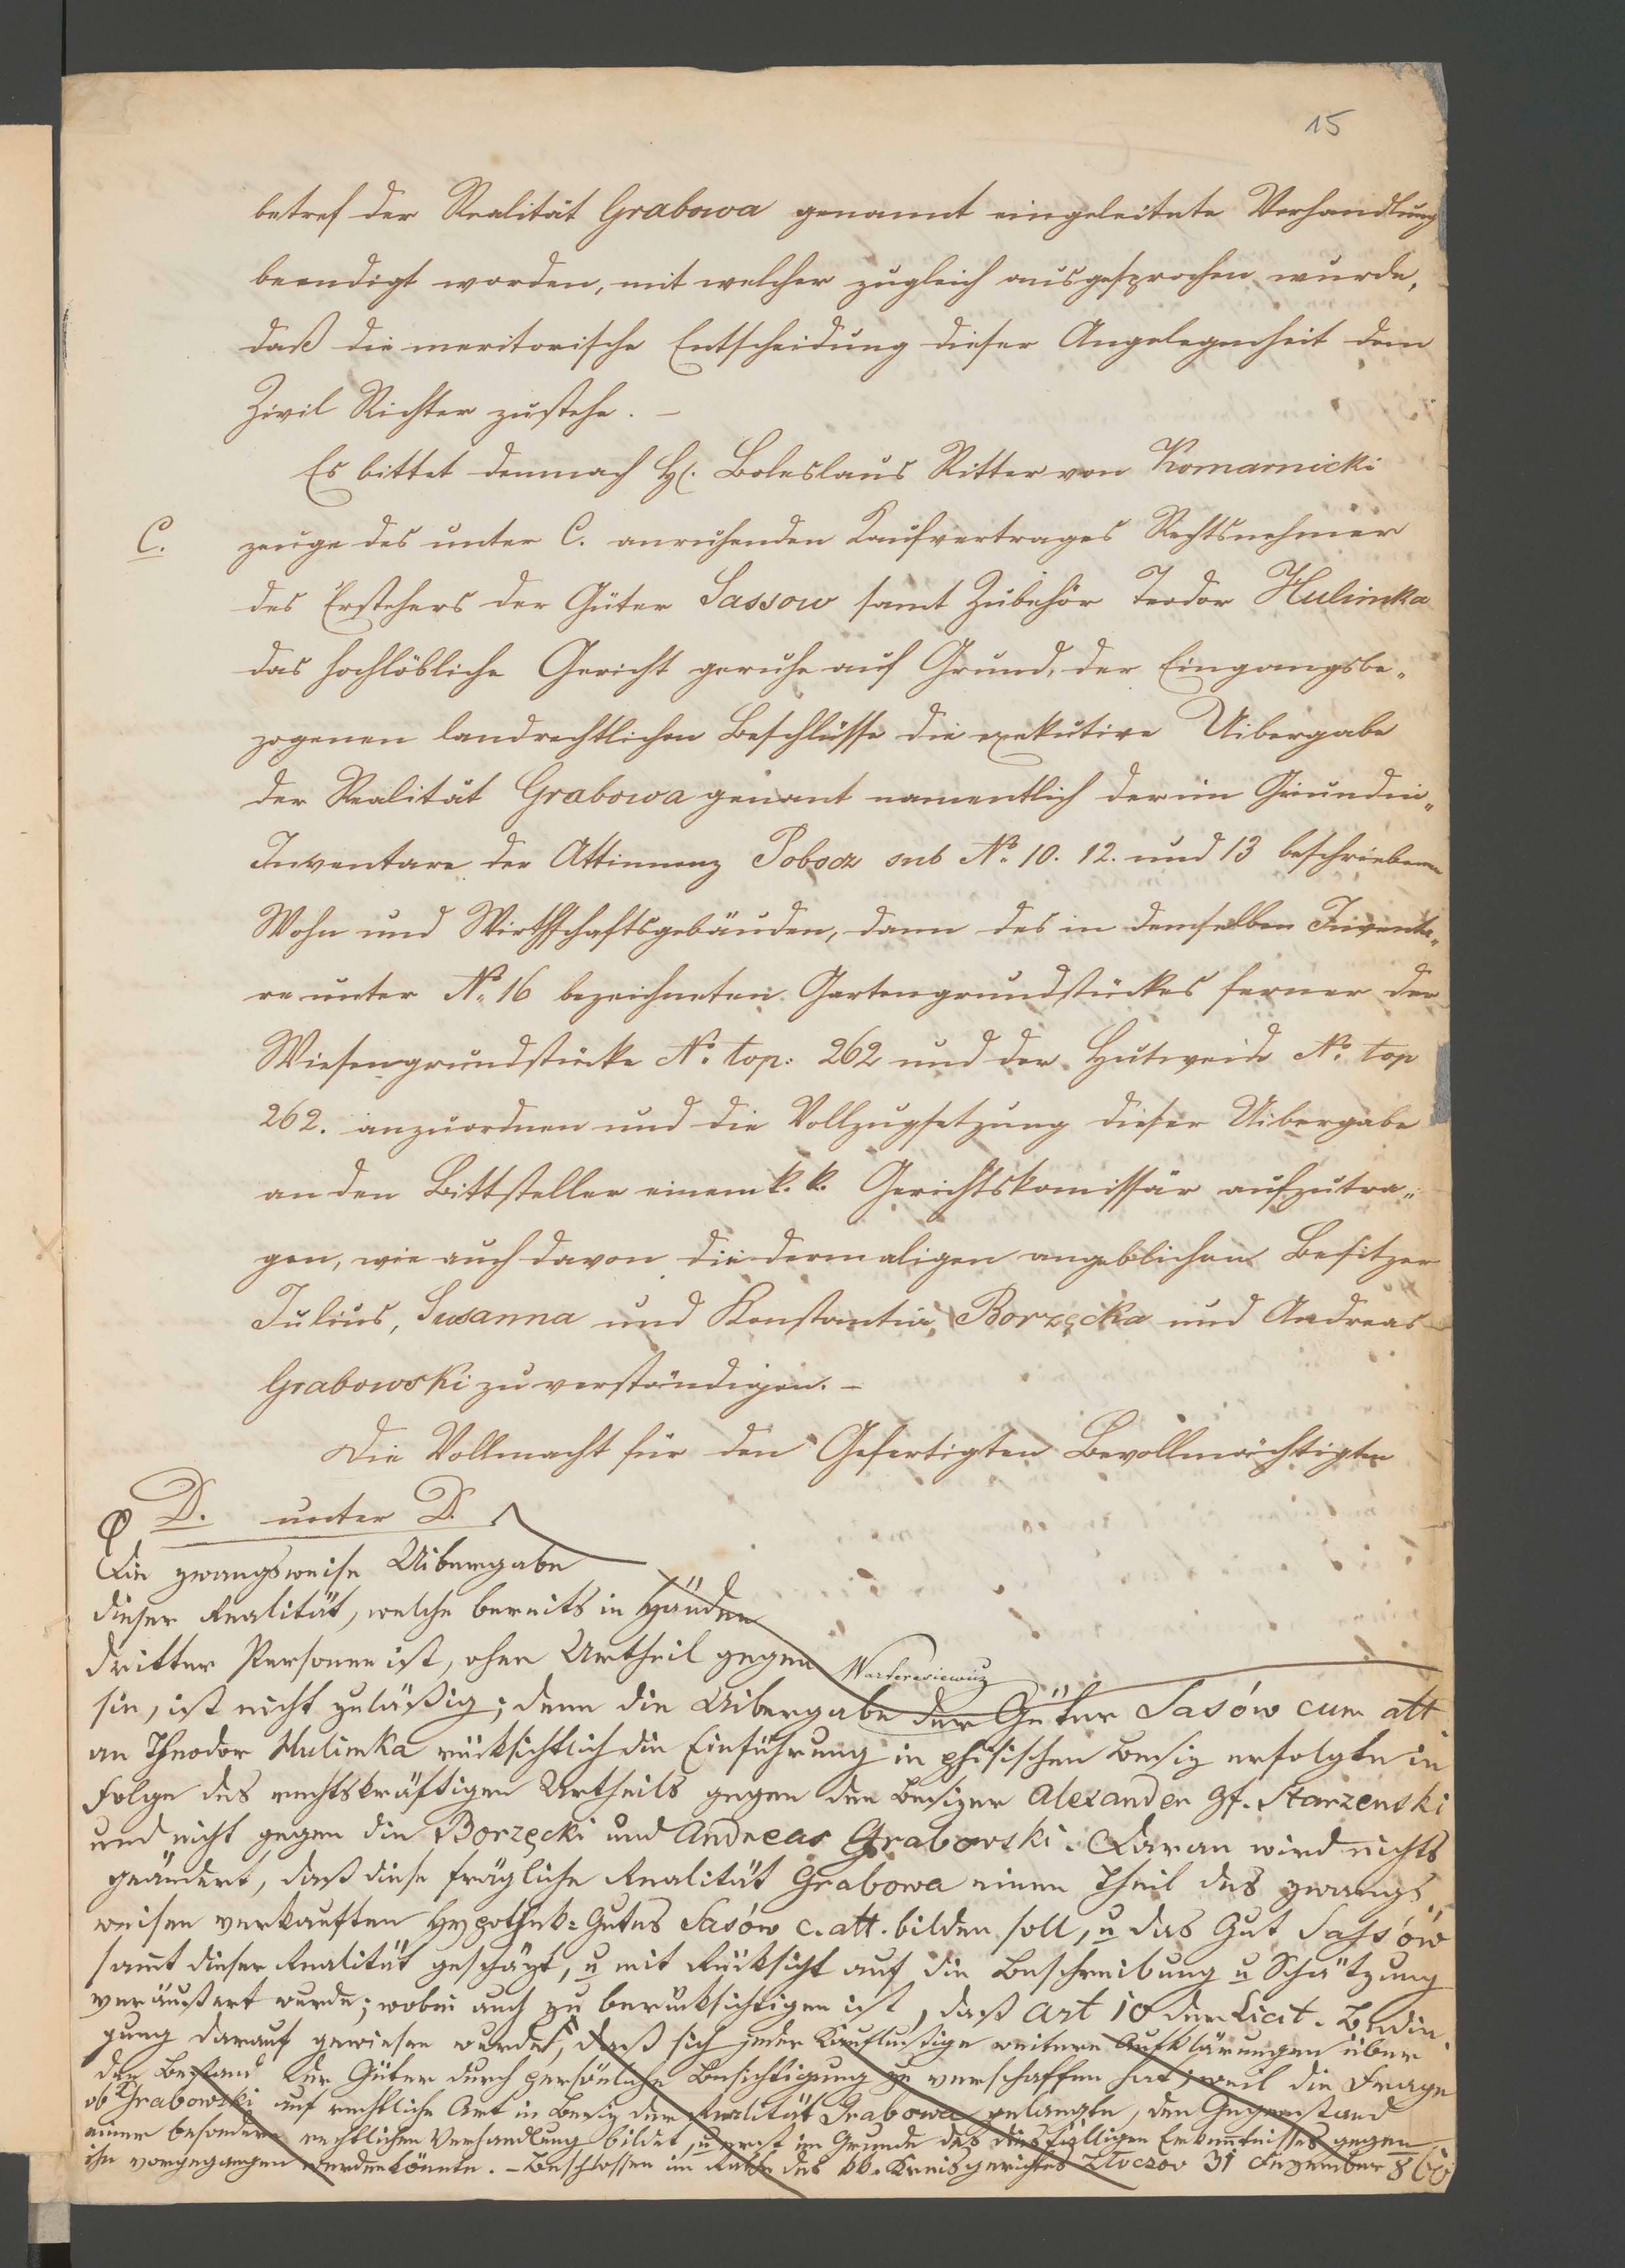 15
betref der Realität Grabowa genannt eingeleitete Verhandlung
beendigt worden, mit welcher zugleich ausgesprochen wurde,
daß die meritorische Entscheidung dieser Angelegenheit dem
Zivil Richter zustehe. –
Es bittet demnach H. Boleslaus Ritter von Komarnicki
C. zeuge des unter C. anruhenden Kaufvertrages Rechtsnehmer
des Erstehers der Güter Sassow samt Zubehör Teodor Hulimka
das hochlöbliche Gericht geruhe auf Grund der Eingangsbe„
zogenen landrechtlichen Beschlüsse die exekutive Uibergabe
der Realität Grabowa genant namentlich der im Grundin„
Inventare der Attinnenz Pobocz sub No. 10. 12. und 13 beschriebenen
Wohn und Wirthschaftsgebäuden, dann des in demselben Inventa„
re unter No. 16 bezeichneten Gartengrundstückes ferner der
Wiesengrundstücke No. top: 262 und der Hutweide No. top
262. anzuordnen und die Vollzugsetzung dieser Uibergabe
an den Bittsteller einem k. k. Gerichtskomissär aufzutra„
gen, wie auch davon die dermaligen angeblichen Besitzer
Julius, Susanna und Konstantia Borzęcka und Andreas
Grabowski zu verständigen. –
Die Vollmacht für den Gefertigten Bevollmächtigten
D. unter D.
Die zwangsweise Uibergabe
dieser Realität, welche bereits in Händen
dritter Personen ist, ohne Urtheil gegen
sie, ist nicht zuläßig; denn die Uibergabe der Güter Sasów cum att
an Theodor Hulimka rücksichtlich die Einführung in phisischen Besiz erfolgte in
Folge des rechtskräftigen Urtheils gegen den Besizer Alexander Gf. Starzenski
und nicht gegen die Borzęcki und Andreas Grabowski. Daran wird nichts
geändert, daß diese frägliche Realität Grabowa einen Theil des zwangs„
weisen verkauften Hypothek-Gutes Sasów c. att. bilden soll, u das Gut Sassów
samt dieser Realität geschäzt, u mit Rücksicht auf die Beschreibung u Schätzung
veräußert wurde; wobei auch zu berücksichtigen ist, daß art 10 der Licit. Bedin„
gung darauf gewiesen wurde, daß sich jeder Kauflustige weitere Aufklärungen über
den Bestand der Güter durch persönliche Besichtigung zu verschaffen hat, weil die Frage
ob Grabowski auf rechtliche Art in Besiz der Realität Grabowa gelangte, den Gegenstand
einer besondern rechtlichen Verhandlung bildet, u erst im Grunde des diesfälligen Erkenntnisses gegen
ihn vorgegangen werden könnte. – Beschlossen im Rathe des kk. Kreisgerichtes Złoczow 31 Dezember 860